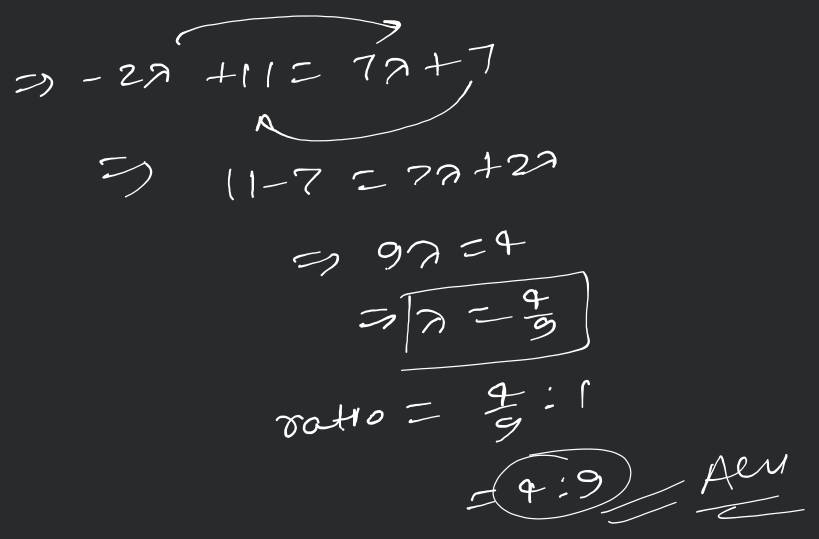 ⇒ -2λ +11 = 7λ+7
⇒ 11-7 = 7λ+2λ
⇒ 9λ = 4
⇒ λ = 4/9
ratio = 4/9 : 1
= 4:9 Ans